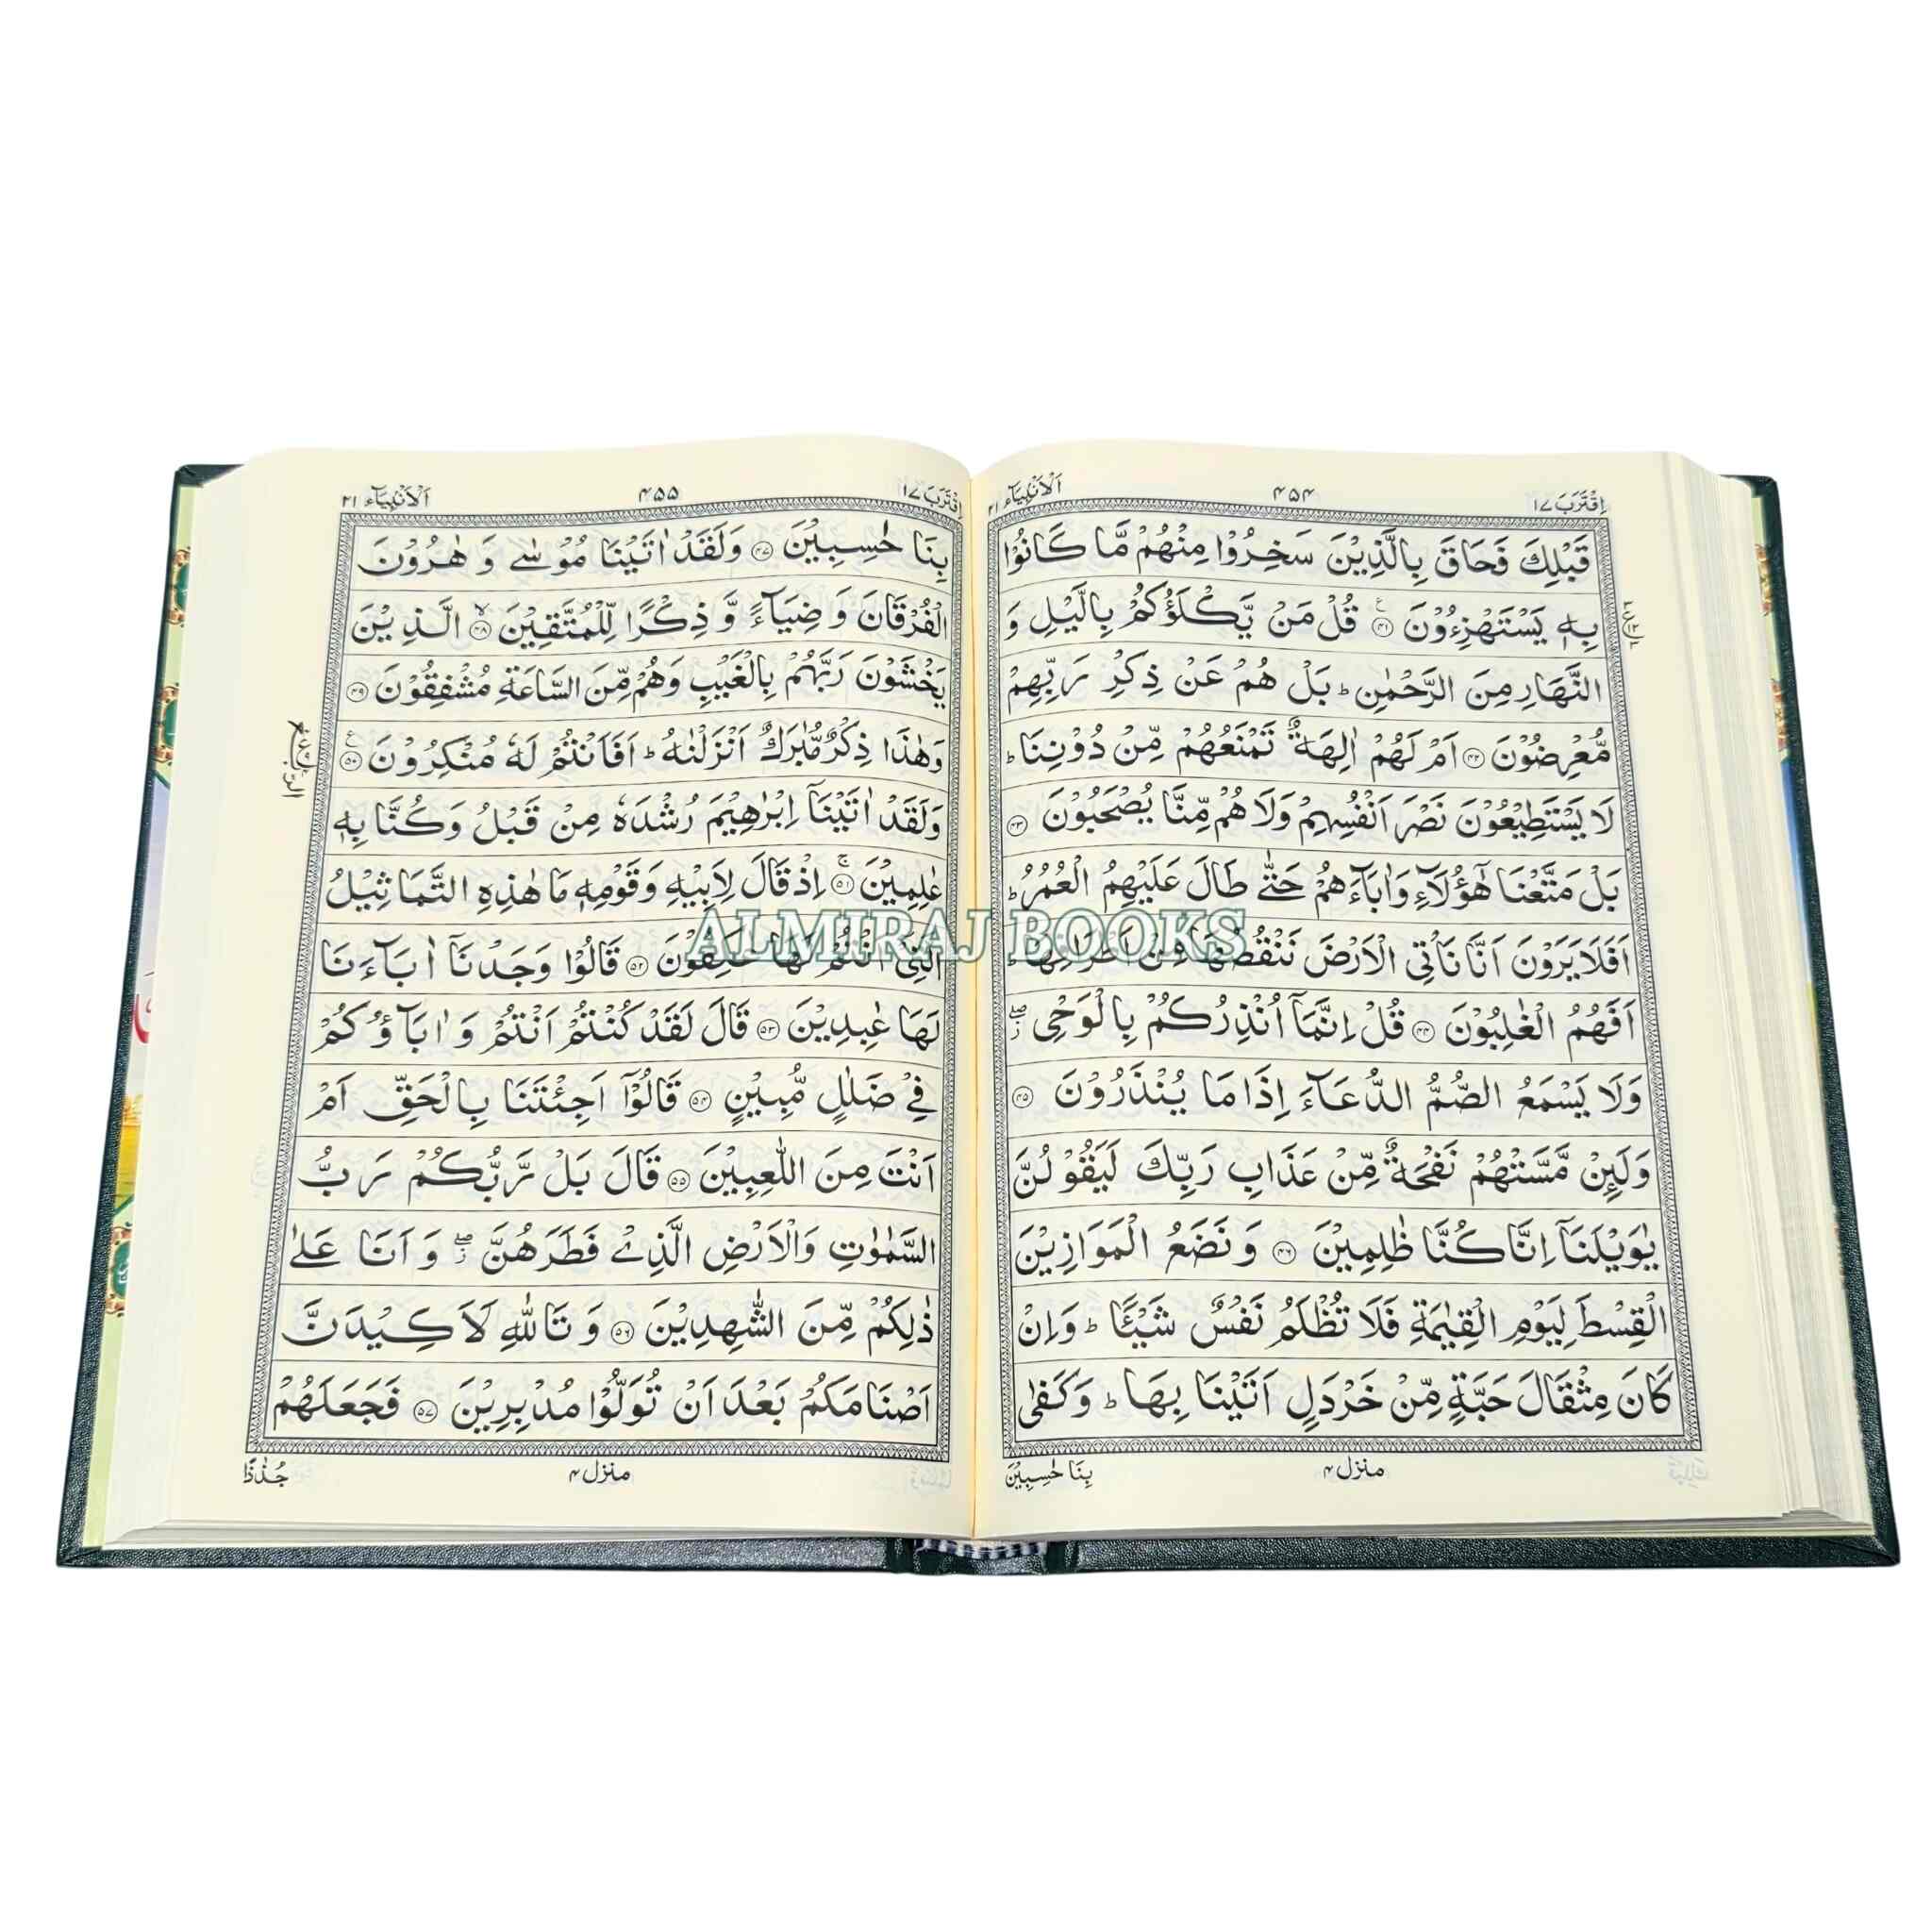 اِقْتَرَبَ ١٧
۴۵۴
اَلْاَنْۢبِيَآء ٢١
قَبْلِكَ فَحَاقَ بِالَّذِيْنَ سَخِرُوْا مِنْهُمْ مَّا كَانُوْا
بِهٖ يَسْتَهْزِءُوْنَ ۴۱ قُلْ مَنْ يَّكْلَؤُكُمْ بِالَّيْلِ وَ
النَّهَارِ مِنَ الرَّحْمٰنِ ؕ بَلْ هُمْ عَنْ ذِكْرِ رَبِّهِمْ
مُّعْرِضُوْنَ ۴۲ اَمْ لَهُمْ اٰلِهَةٌ تَمْنَعُهُمْ مِّنْ دُوْنِنَا ؕ
لَا يَسْتَطِيْعُوْنَ نَصْرَ اَنْفُسِهِمْ وَلَا هُمْ مِّنَّا يُصْحَبُوْنَ ۴۳
بَلْ مَتَّعْنَا هٰٓؤُلَآءِ وَاٰبَآءَهُمْ حَتّٰى طَالَ عَلَيْهِمُ الْعُمُرُ ؕ
اَفَلَا يَرَوْنَ اَنَّا نَاْتِى الْاَرْضَ نَنْقُصُهَا مِنْ اَطْرَافِهَا ؕ
اَفَهُمُ الْغٰلِبُوْنَ ۴۴ قُلْ اِنَّمَآ اُنْذِرُكُمْ بِالْوَحْىِ ۖز
وَلَا يَسْمَعُ الصُّمُّ الدُّعَآءَ اِذَا مَا يُنْذَرُوْنَ ۴۵
وَلَئِنْ مَّسَّتْهُمْ نَفْحَةٌ مِّنْ عَذَابِ رَبِّكَ لَيَقُوْلُنَّ
يٰوَيْلَنَآ اِنَّا كُنَّا ظٰلِمِيْنَ ۴۶ وَنَضَعُ الْمَوَازِيْنَ
الْقِسْطَ لِيَوْمِ الْقِيٰمَةِ فَلَا تُظْلَمُ نَفْسٌ شَيْـًٔا ؕ وَاِنْ
كَانَ مِثْقَالَ حَبَّةٍ مِّنْ خَرْدَلٍ اَتَيْنَا بِهَا ؕ وَكَفٰى
منزل ۴
بِنَا حٰسِبِيْنَ
اِقْتَرَبَ ١٧
۴۵۵
اَلْاَنْۢبِيَآء ٢١
بِنَا حٰسِبِيْنَ ۴۷ وَلَقَدْ اٰتَيْنَا مُوْسٰى وَ هٰرُوْنَ
الْفُرْقَانَ وَ ضِيَآءً وَّ ذِكْرًا لِّلْمُتَّقِيْنَ ۴۸ الَّذِيْنَ
يَخْشَوْنَ رَبَّهُمْ بِالْغَيْبِ وَهُمْ مِّنَ السَّاعَةِ مُشْفِقُوْنَ ۴۹
وَهٰذَا ذِكْرٌ مُّبٰرَكٌ اَنْزَلْنٰهُ ؕ اَفَاَنْتُمْ لَهٗ مُنْكِرُوْنَ ۵۰
وَلَقَدْ اٰتَيْنَآ اِبْرٰهِيْمَ رُشْدَهٗ مِنْ قَبْلُ وَكُنَّا بِهٖ
عٰلِمِيْنَ ۵۱ اِذْ قَالَ لِاَبِيْهِ وَقَوْمِهٖ مَا هٰذِهِ التَّمَاثِيْلُ
الَّتِىْٓ اَنْتُمْ لَهَا عٰكِفُوْنَ ۵۲ قَالُوْا وَجَدْنَآ اٰبَآءَنَا
لَهَا عٰبِدِيْنَ ۵۳ قَالَ لَقَدْ كُنْتُمْ اَنْتُمْ وَ اٰبَآؤُكُمْ
فِىْ ضَلٰلٍ مُّبِيْنٍ ۵۴ قَالُوْٓا اَجِئْتَنَا بِالْحَقِّ اَمْ
اَنْتَ مِنَ اللّٰعِبِيْنَ ۵۵ قَالَ بَلْ رَّبُّكُمْ رَبُّ
السَّمٰوٰتِ وَالْاَرْضِ الَّذِىْ فَطَرَهُنَّ ۖز وَ اَنَا عَلٰى
ذٰلِكُمْ مِّنَ الشّٰهِدِيْنَ ۵۶ وَ تَاللّٰهِ لَاَكِيْدَنَّ
اَصْنَامَكُمْ بَعْدَ اَنْ تُوَلُّوْا مُدْبِرِيْنَ ۵۷ فَجَعَلَهُمْ
منزل ۴
جُذٰذًا
ALMIRAJ BOOKS